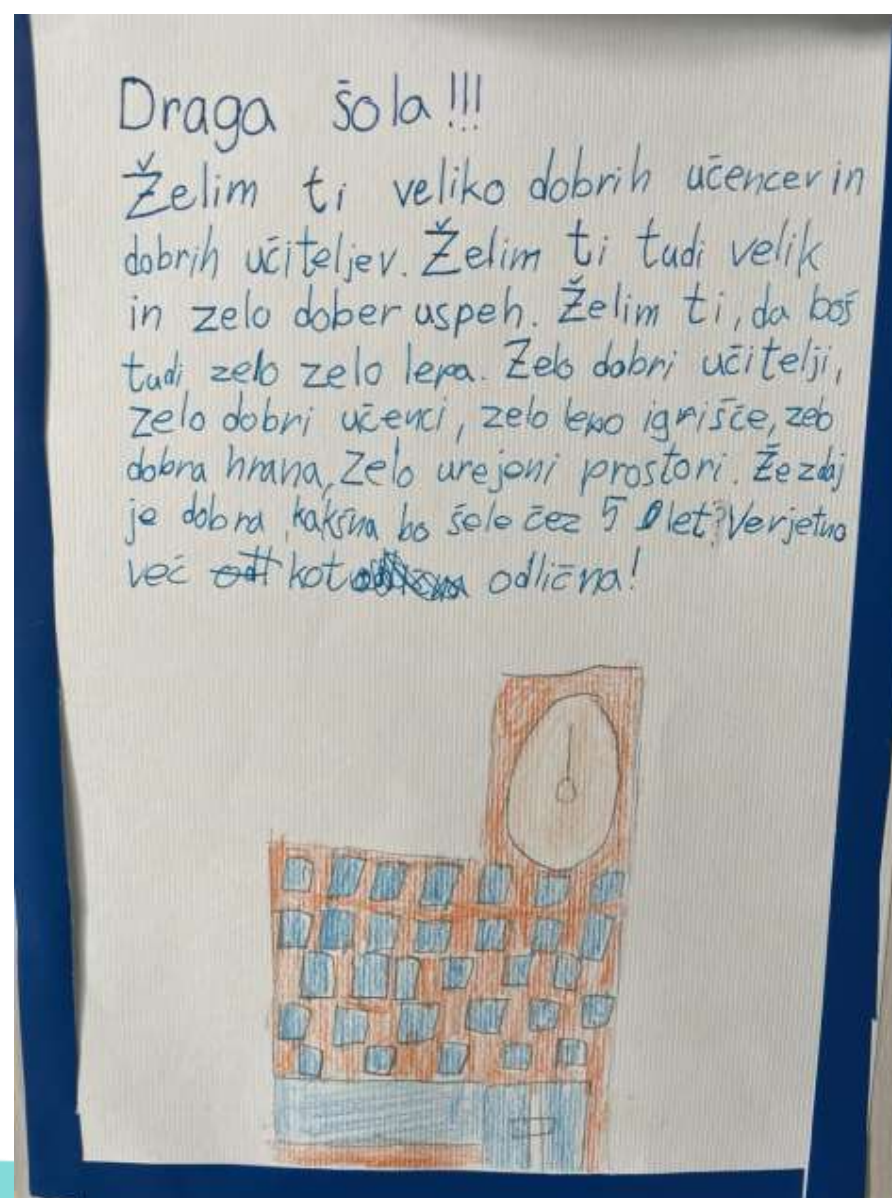 Draga šola!!!
Želim ti veliko dobrih učencev in
dobrih učiteljev. Želim ti tudi velik
in zelo dober uspeh. Želim ti, da boš
tudi zelo zelo lepa. Zelo dobri učitelji,
zelo dobri učenci, zelo lepo igrišče, zelo
dobra hrana, zelo urejeni prostori. Že zdaj
je dobra, kakšna bo šele čez 50 let? Verjetno
več kot odlična!